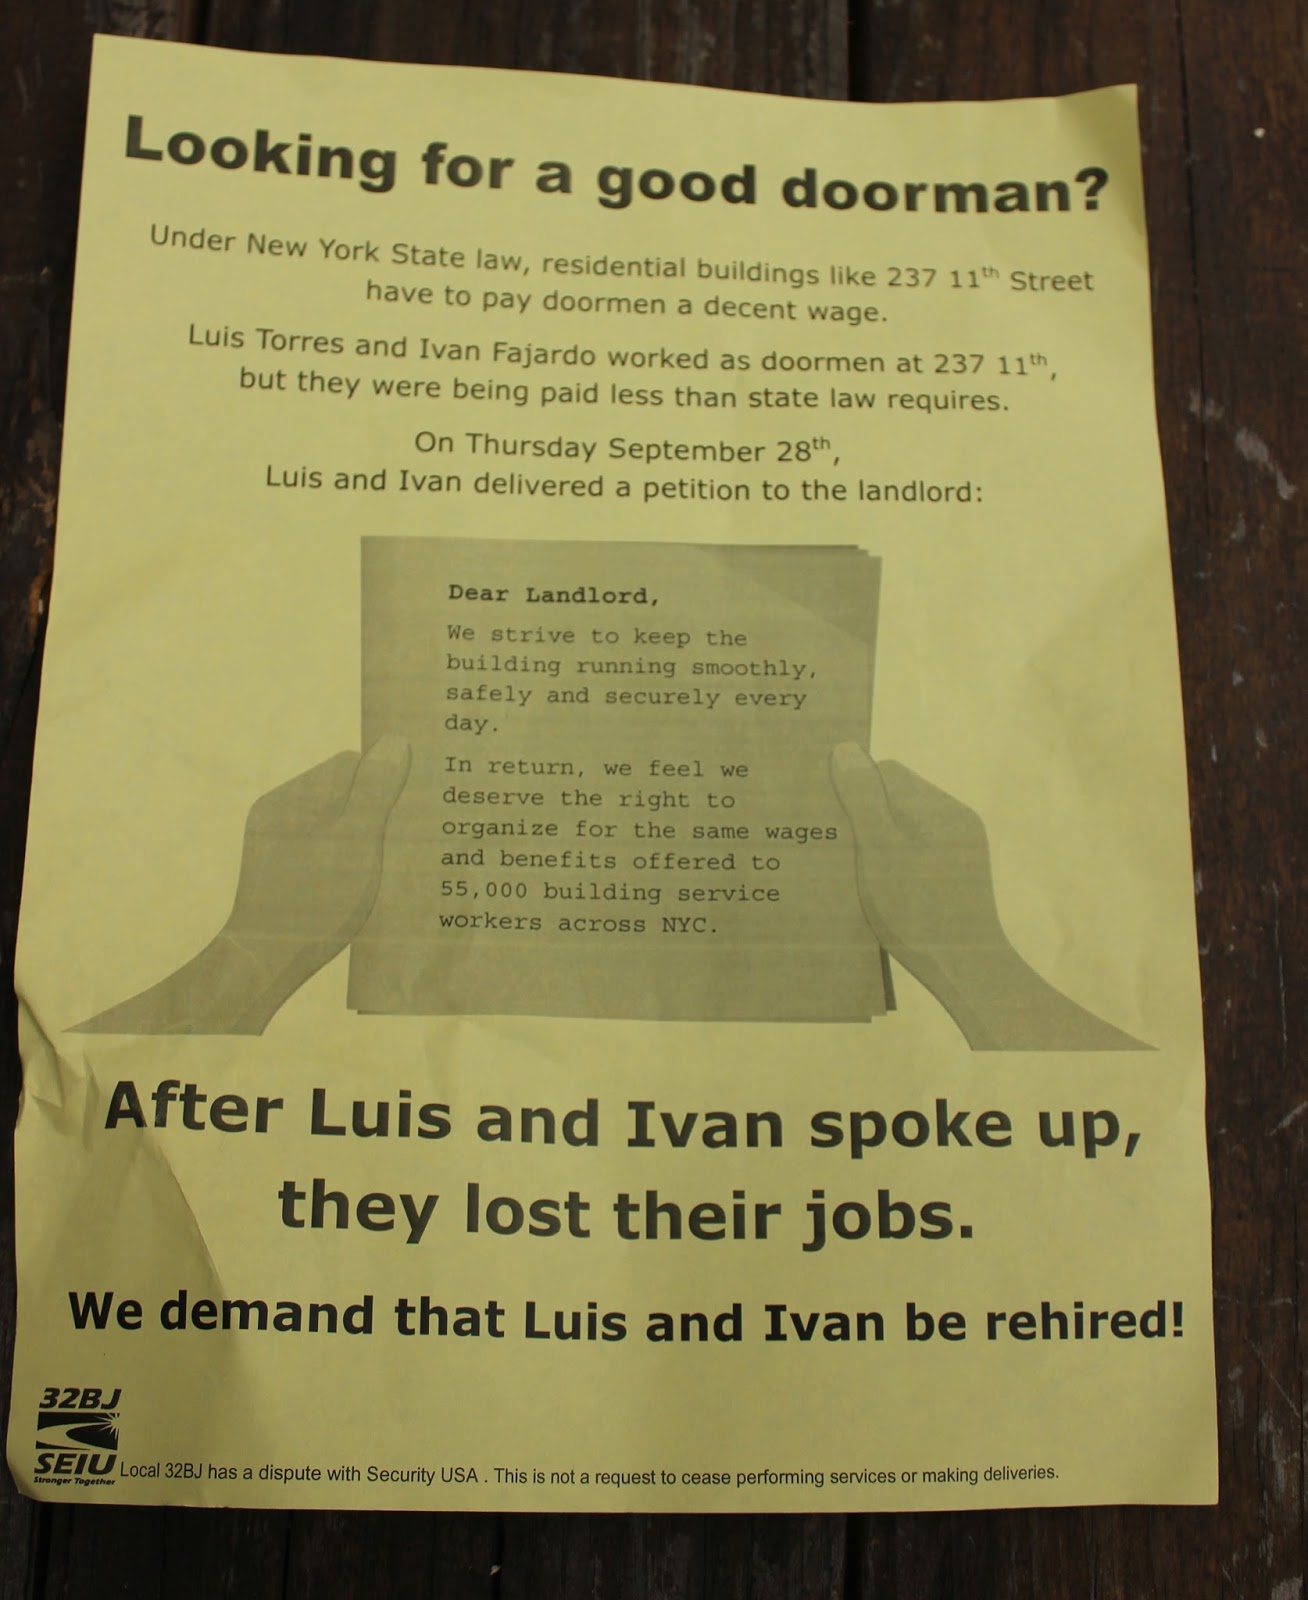 Looking for a good doorman?
Under New York State law, residential buildings like 237 11th Street
have to pay doormen a decent wage.
Luis Torres and Ivan Fajardo worked as doormen at 237 11th,
but they were being paid less than state law requires.
On Thursday September 28th,
Luis and Ivan delivered a petition to the landlord:
Dear Landlord,
We strive to keep the
building running smoothly,
safely and securely every
day.
In return, we feel we
deserve the right to
organize for the same wages
and benefits offered to
55,000 building service
workers across NYC.
After Luis and Ivan spoke up,
they lost their jobs.
We demand that Luis and Ivan be rehired!
32BJ
SEIU
Stronger Together
Local 32BJ has a dispute with Security USA . This is not a request to cease performing services or making deliveries.